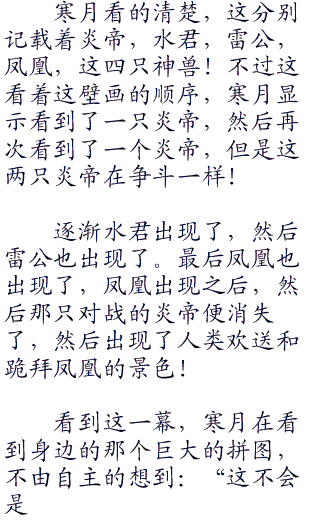 寒月看的清楚，这分别
记载着炎帝，水君，雷公，
凤凰，这四只神兽！不过这
看着这壁画的顺序，寒月显
示看到了一只炎帝，然后再
次看到了一个炎帝，但是这
两只炎帝在争斗一样！
逐渐水君出现了，然后
雷公也出现了。最后凤凰也
出现了，凤凰出现之后，然
后那只对战的炎帝便消失
了，然后出现了人类欢送和
跪拜凤凰的景色！
看到这一幕，寒月在看
到身边的那个巨大的拼图，
不由自主的想到：“这不会
是